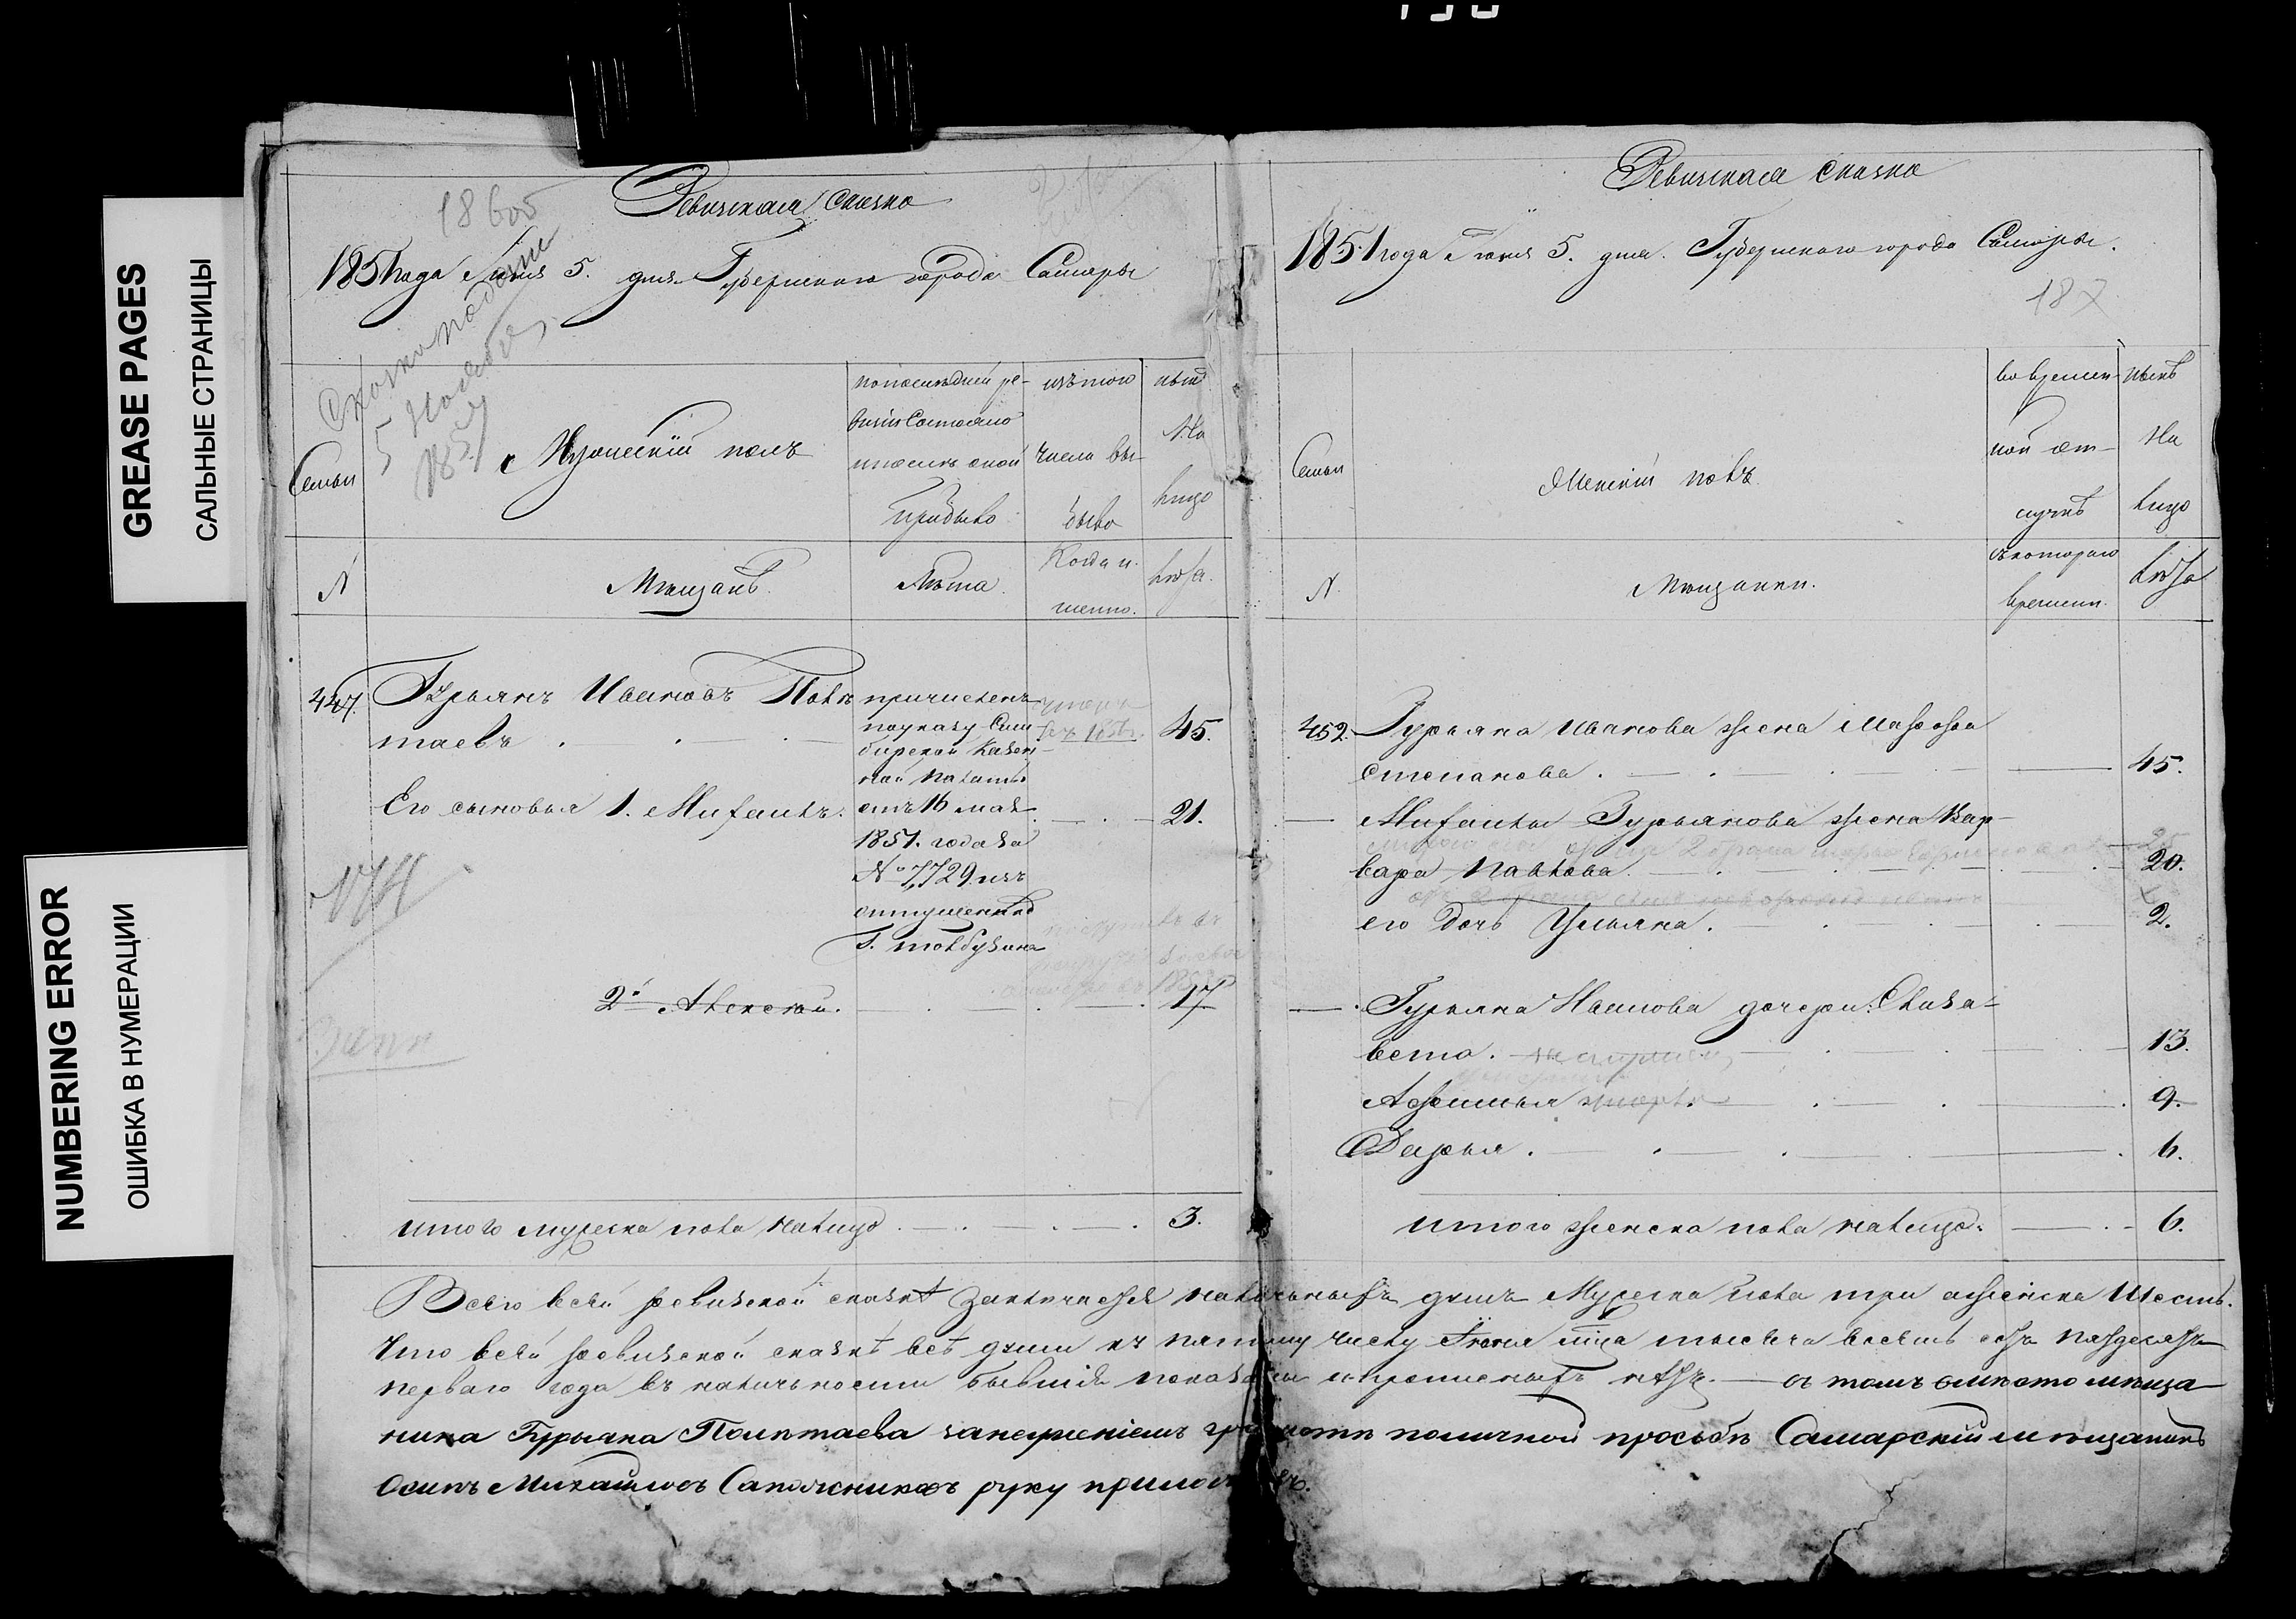 GREASE PAGES
САЛЬНЫЕ СТРАНИЦЫ
NUMBERING ERROR
ОШИБКА В НУМЕРАЦИИ
Ревизская сказка
1851 года Июня 5. дня. Губернскаго города Самары
Сказка подана
5 Ноября
1851
Семьи
Мужескій полъ
по последней ре-
визіи состояло
и после оной
прибыло
изъ того
числа вы-
было
ныне
на
лицо
№
Мещанъ.
Лета.
Когда и-
менно.
лета.
447.
Гурьянъ Ивановъ Полек-
таевъ
причисленъ
по указу Сим-
бирской Казен-
ной палаты
отъ 16 мая
1851. года за
№ 7729 изъ
отпущенныхъ
Г. Толбузина
45.
Его сыновья 1. Михаилъ.
21.
2й Алексей.
17
итого мужеска пола налицо
3.
Ревизская сказка
1851 года Июня 5. дня. Губернскаго города Самары.
187
Семьи
Женскій полъ
во времен-
ной от-
лучке
ныне
на
лицо
№
Мещанки.
съ котораго
времени.
лета
452.
Гурьяна Иванова жена Марфа
Степанова.
45.
Михаилы Гурьянова жена Вар-
вара Павлова.
20.
его дочь Ульяна.
2.
Гурьяна Иванова дочери: Елиза-
вета.
13.
Афимья
9.
Дарья.
6.
итого женска пола налицо.
6.
Всего в сей ревизской сказке заключается наличныхъ душъ Мужеска пола три а женска Шесть.
Что в сей ревизской сказке все души къ пятому числу Июня мца тысяча восемь сотъ пятьдесятъ
перваго года въ наличности бывшія показаны и прописныхъ нетъ. — въ томъ вместо мещa-
нина Гурьяна Поликтаева за неумениемъ грамоте по личной просьбе Самарскій мещанинъ
Осипъ Михайловъ Сапожниковъ руку приложилъ.